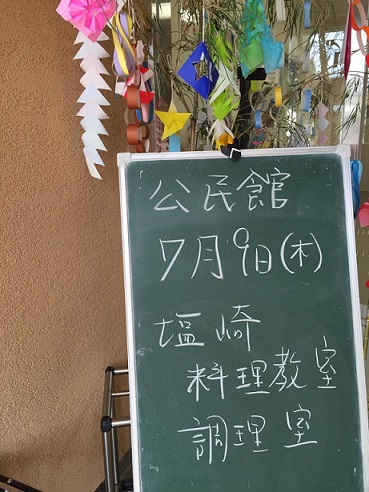 公民館
7月9日(木)
塩崎
料理教室
調理室